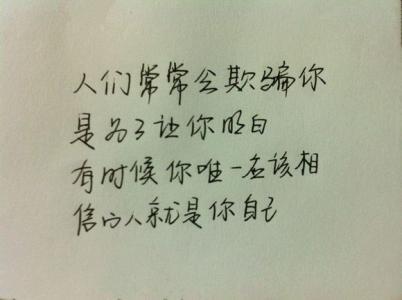 人们常常会欺骗你
是为了让你明白
有时候你唯一应该相
信的人就是你自己